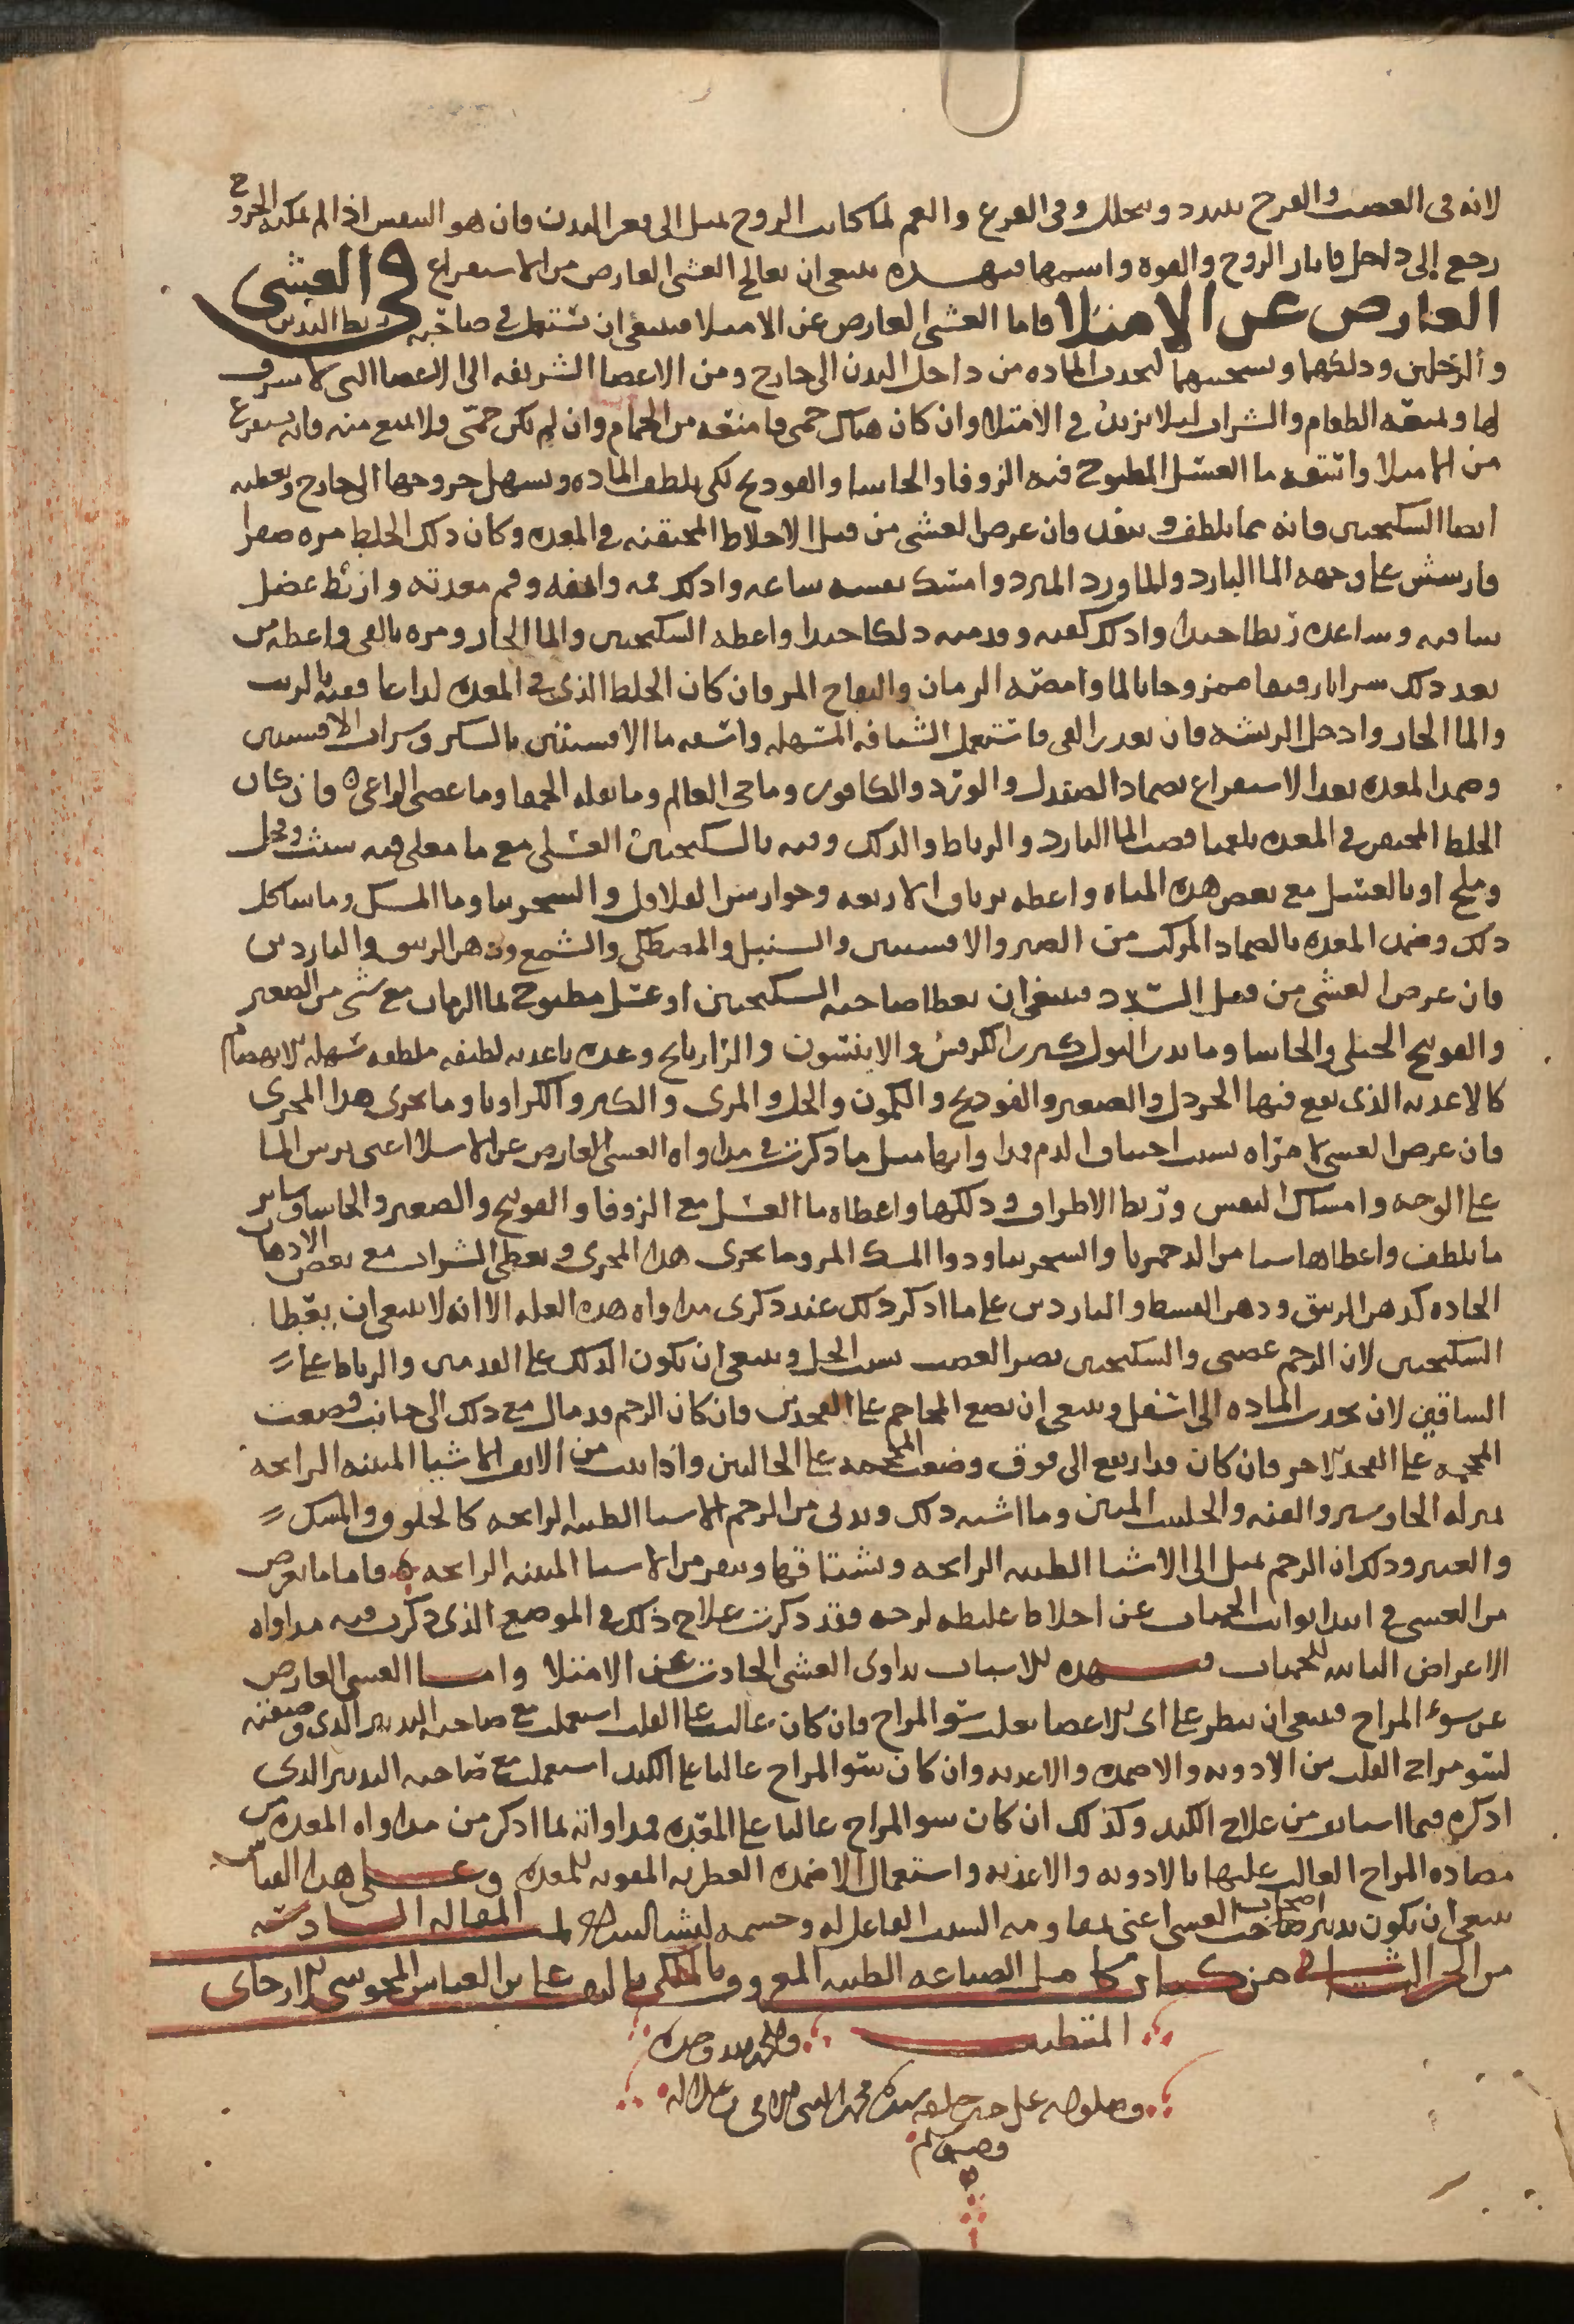 لانه فى الغضب والفرح يتبدد ويتحلل وفى الفزع والغم لما كانت الروح تميل الى قعر البدن فان هو النفس اذا لم يمكنه الخروج
رجع إلى داخل فانار الروح والقوه فبهذه ينبغى ان يعالج الغشى العارض من الاستفراغ في الغشي
العارض عن الامتلا فاما الغشى العارض عن الامتلا فينبغى ان تستعمل فى صاحبه ربط اليدين
والرجلين ودلكهما وتسخينهما لتجذب الماده من داخل البدن الى خارج ومن الاعضا الشريفه الى الاعضا التى لا شرف
لها وتمنعه الطعام والشراب ليلا يزيدن فى الامتلا وان كان هناك حمى فامنعه من الحمام وان لم يكن حمّى فلا تمنع منه فانه يستفرغ
من الامتلا واسقه ما العسل المطبوخ فيه الزوفا والحاشا والفودنج لكى يلطف الماده ويسهل خروجها الى خارج وتعطيه
ايضا السكنجبين فانه مما يلطف وينفذ فان عرض الغشى من قبل الاخلاط المحتقنه فى المعده وكان ذلك الخلط مره صفرا
فارشش على وجهه الما البارد والماورد المبرد وامسك نفسه ساعه وادلك فمه وانفه وفم معدته واربط عضل
ساقيه وساعده ربطا جيدا وادلك كفيه وقدميه دلكا جيدا واعطه السكنجبين والما الحار ومره بالقى واعطه من
بعد ذلك شرابا رقيقا ممزوجا بالما وامصّه الرمان والتفاح المز فان كان الخلط الذى فى المعده لداعا فقيه بالزيت
والما الحار وادخل الريشه فان تعذر القى فاستعمل الشيافه المسهله واسقه ما الافسنتين بالسكر وشراب الافسنتين
وضمد المعده بعد الاستفراغ بضماد الصندل والورد والكافور وماحى العالم وما بقله الحمقا وما عصى الراعى وان كان
الخلط المحتقن فى المعده بلغما فصب الما البارد والرباط والدلك وقيه بالسكنجبين العسلى مع ما مغلى فيه شبث وفجل
وملح او بالعسل مع بعض هذه المياه واعطه ترياق الاربعه وجوارشن الفلافل والشجرينا وما المسك وما شاكل
ذلك وضمد المعده بالضماد المركب من الصبر والافسنتين والسنبل والمصطكى والشمع ودهن الزنبق والناردين
فان عرض الغشى من قبل السّدد فينبغى ان يعطا صاحبه السكنجبين او عسل مطبوخ بما الرمان مع شى من الصعتر
والفودنج الجبلى والحاشا وما يدر البول كبزر الكرفس والانيسون والرازيانج وغده باغذيه لطيفه ملطفه سهله الانهضام
كالاغذيه الذى يقع فيها الخردل والصعتر والفودنج والكمون والخل والمرى والكبر والكراويا وما يجرى هذا المجرى
فان عرض الغشى لامراه بسبب احتباق الدم فداوائها مثل ما ذكرت فى مداواه الغشى العارض عن الامتلا اعنى برش الما
على الوجه وامساك النفس وربط الاطراف ودلكها واعطاه ما العسل مع الزوفا والفودنج والصعتر والحاشا وساير
ما يلطف واعطاها شيا من الدحمرثا والشجرينا ودوا المسك المر وما يجرى هذا المجرى ويعطى الشراب مع بعض الادهان
الحاده كدهن الزنبق ودهن القسط والناردين على ما اذكر ذلك عند ذكرى مداواه هذه العله الا انه لا ينبغى ان يعطا
السكنجبين لان الرحم عصبى والسكنجبين يضر العصب بسبب الخل وينبغى ان يكون الدلك على القدمين والرباط على
الساقين لان تجذب الماده الى اسفل وينبغى ان تضع المحاجم على الفخذين فان كان الرحم قد مال مع ذلك الى جانب وضعت
المحجمه على الفخذ الاخر فان كان قد ارتفع الى فوق وضعت المحجمه على الحالبين واذا ادنيت من الانف الاشيا المنتنه الرايحه
بمنزله الجاوشير والقنه والحلتيت المنتن وما اشبه ذلك وتدنى من الرحم الاشيا الطيبه الرايحه كالخلوق والمسك
والعنبر وذلك ان الرحم تميل الى الاشيا الطيبه الرايحه وتشتاقها وتنفر من الاشيا المنتنه الرايحه فاما ما يعرض
من الغشى فى ابتدا نوايب الحميات عن اخلاط غليظه لزجه فقد ذكرت علاج ذلك فى الموضع الذى ذكرت فيه مداواه
الاعراض التابعه للحميات فبهذه الاسباب يداوى الغشى الحادث عن الامتلا واما الغشى العارض
عن سوء المزاج فينبغى ان ينظر على اى الاعضا يغلب سو المزاج فان كان غالب على القلب استعملت مع صاحبه التدبير الذى وصفته
لسو مزاج القلب من الادويه والاضمده والاغذيه وان كان سو المزاج غالبا على الكبد استعملت مع صاحبه التدبير الذى
اذكره فيما استانف من علاج الكبد وكذلك ان كان سو المزاج غالبا على المعده فمداواته بما اذكر من مداواه المعده من
مضاده المزاج الغالب عليها بالادويه والاغذيه واستعمال الاضمده العطريه المقويه للمعده وعلى هذا القياس
ينبغى ان يكون تدبير اصحاب الغشى اعنى بمقاومه السبب الفاعل له وحسمه ليشا الله تمت المقاله السادسه
من الجز الثانى من كتاب كامل الصناعه الطبيه المعروف بالملكى تاليف على بن العباس المجوسى الارجانى
المتطبب والحمد لله وحده
وصلواته على خير خلقه سيدنا محمد النبى الامى وعلى اله
وصحبه وسلم